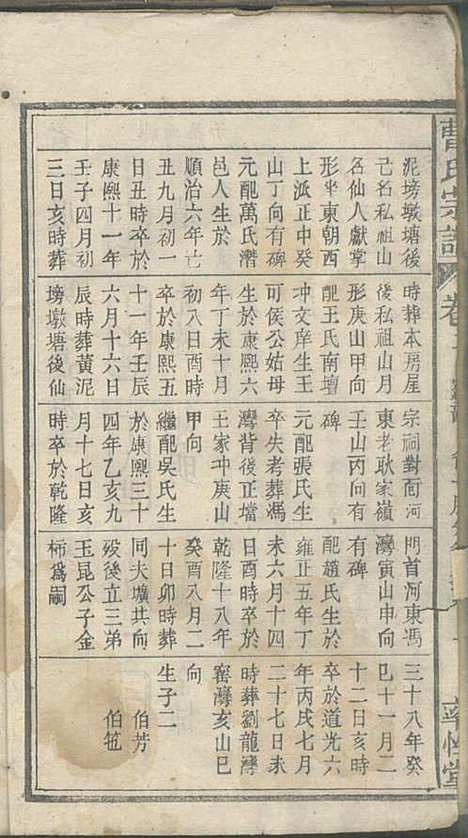 曹氏宗譜
卷
率性堂
泥塝墩塘後
己名私祖山
名仙人獻掌
形坐東朝西
上派正中癸
山丁向有碑
元配萬氏潛
邑人生於
順治六年亡
丑九月初一
日丑時卒於
康熙十一年
壬子四月初
三日亥時葬
時葬本房屋
後私祖山月
形庚山甲向
配王氏南壇
冲文庠生王
可侯公姑母
生於康熙六
年丁未十月
初八日酉時
卒於康熙五
十一年壬辰
六月十六日
辰時葬黃泥
塝墩塘後仙
宗祠對面河
東老耿家嶺
壬山丙向有
碑
元配張氏生
卒失考葬馮
灣背後正壋
王家冲庚山
甲向
繼配吳氏生
於康熙三十
四年乙亥九
月十七日亥
時卒於乾隆
門首河東馮
灣寅山申向
有碑
配趙氏生於
雍正五年丁
未六月十四
日酉時卒於
乾隆十八年
癸酉八月二
十日卯時葬
同夫壙共向
歿後立三弟
玉昆公子金
柿爲嗣
三十八年癸
巳十一月二
十二日亥時
卒於道光六
年丙戌七月
二十七日未
時葬劉龍灣
窰灣亥山巳
向
生子二
伯芳
伯